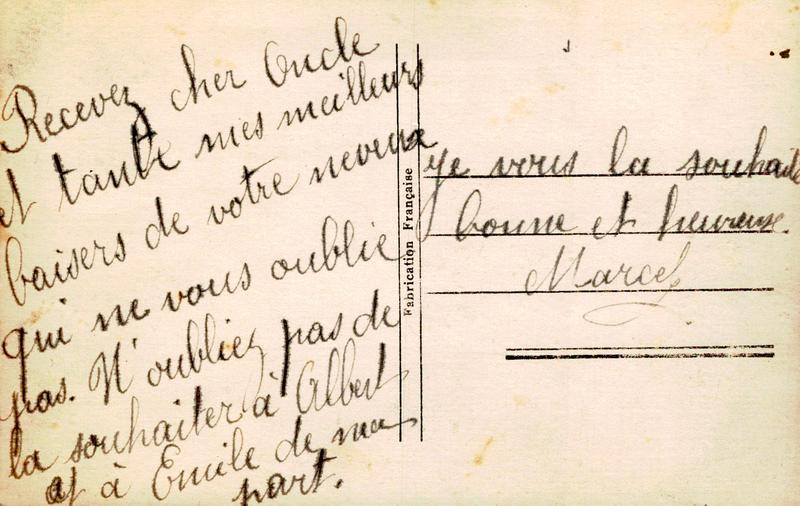 Recevez cher Oncle
et tante mes meilleurs
baisers de votre neveux
qui ne vous oublie
pas. N'oubliez pas de
la souhaiter à Albert
et à Emile de ma
part.
Fabrication Française
je vous la souhaite
bonne et heureuse.
Marcel